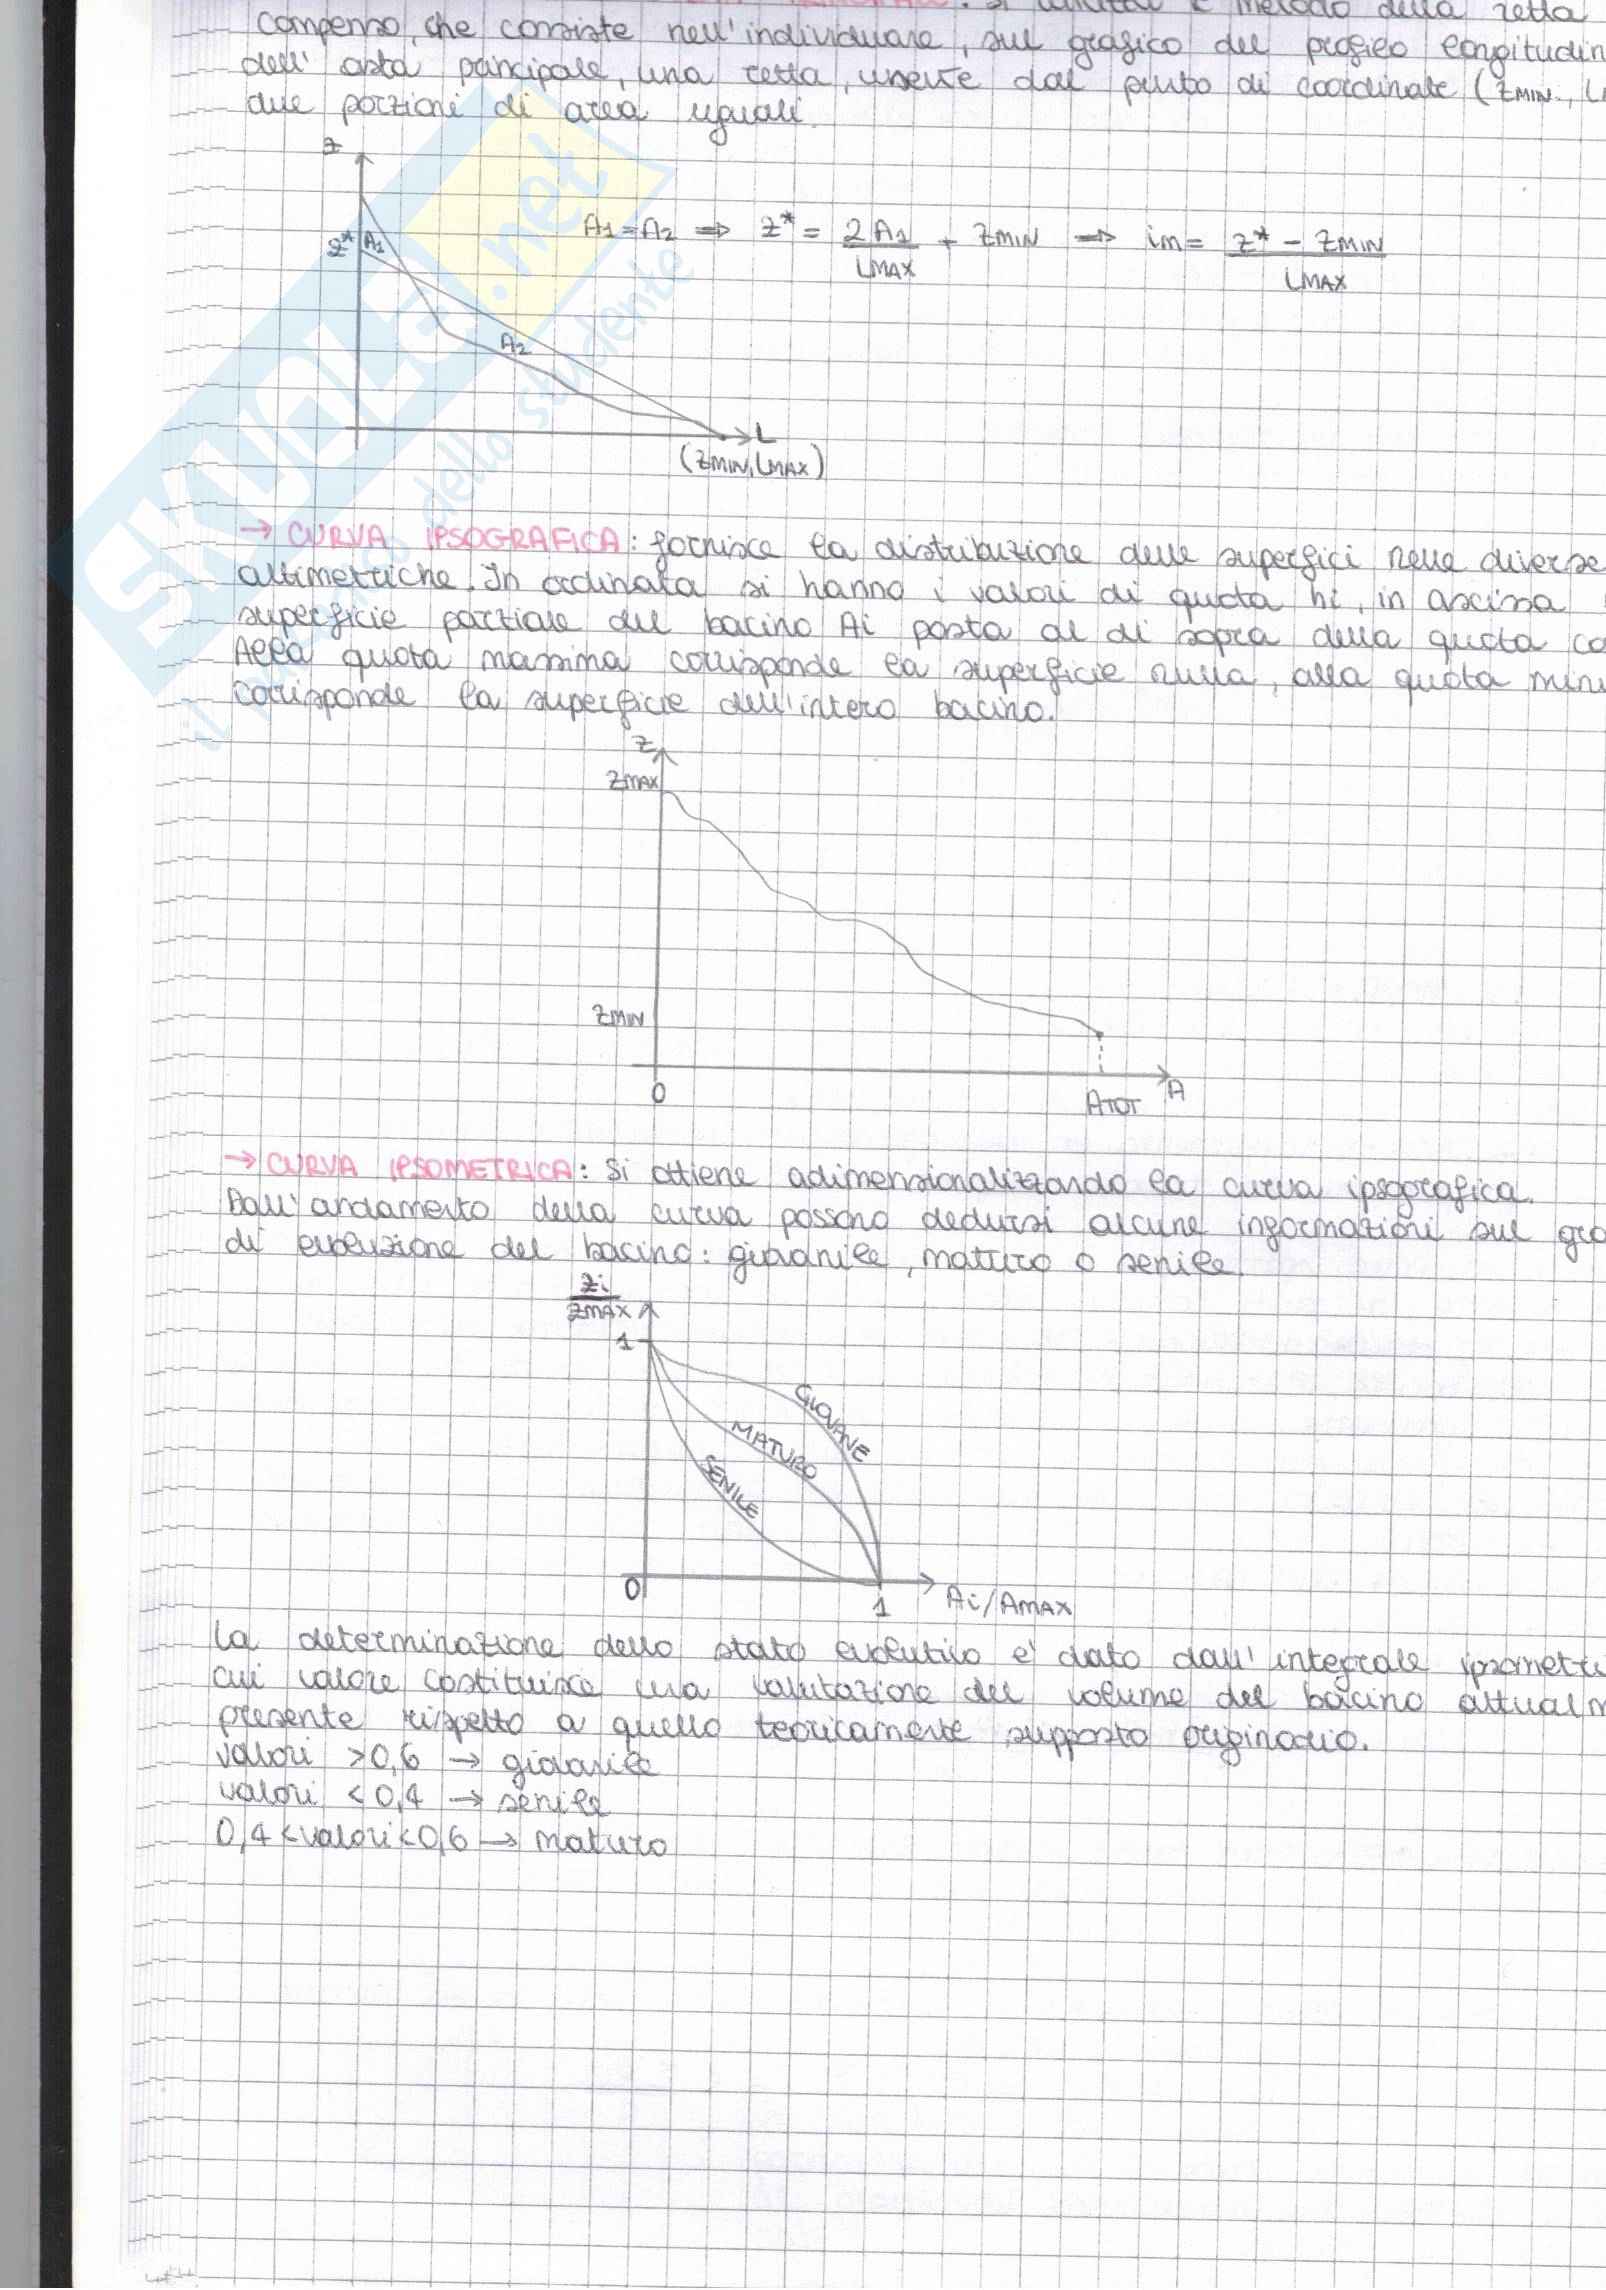 : si utilizza il metodo della retta
compenso, che consiste nell'individuare, sul grafico del profilo longitudin
dell' asta principale, una retta, uscente dal punto di coordinate (ZMIN., L
due porzioni di area uguali.
Z
Z* A1
A1=A2 ⇒ Z* = 2A1/LMAX + ZMIN ⇒ im = Z* - ZMIN/LMAX
A2
L
(ZMIN, LMAX)
→ CURVA IPSOGRAFICA: fornisce la distribuzione delle superfici nelle diverse
altimetriche. In ordinata si hanno i valori di quota hi, in ascissa
superficie parziale del bacino Ai posta al di sopra della quota co
Alla quota massima corrisponde la superficie nulla, alla quota mini
corrisponde la superficie dell'intero bacino.
Z
ZMAX
ZMIN
0
ATOT
A
→ CURVA IPSOMETRICA: Si ottiene adimensionalizzando la curva ipsografica.
Dall'andamento della curva possono dedursi alcune informazioni sul gra
di evoluzione del bacino: giovanile, maturo o senile.
Zi/ZMAX
1
GIOVANE
MATURO
SENILE
0
1
Ai/AMAX
La determinazione dello stato evolutivo è dato dall'integrale ipsometri
cui valore costituisce una valutazione del volume del bacino attualm
presente rispetto a quello teoricamente supposto originario.
valori >0,6 → giovanile
valori <0,4 → senile
0,4<valori<0,6 → maturo
SKUOLA.net
il paradiso dello studente